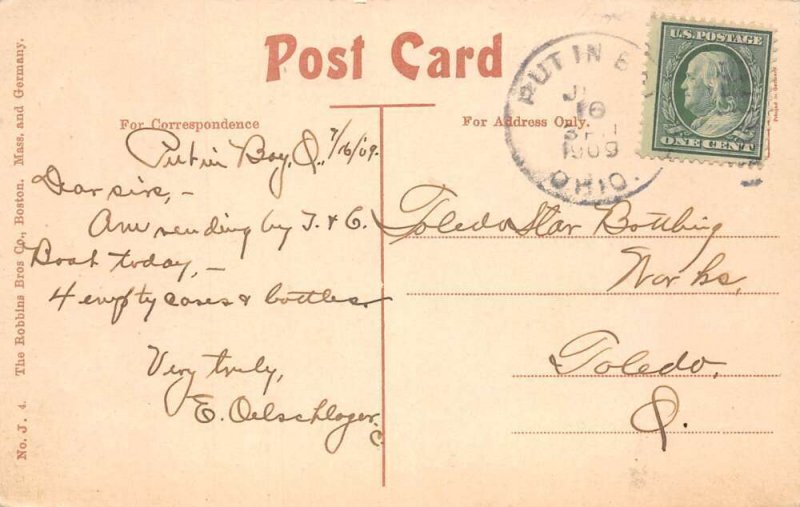 Post Card
For Correspondence
For Address Only.
Put in Bay, O. 7/16/09.
Dear sirs, -
Am sending by T. & C.
Boat today, -
4 empty cases & bottles.
Very truly,
E. Oelschlager.
Toledo Star Bottling
Works,
Toledo,
O.
PUT IN BAY
16
1909
OHIO.
U.S. POSTAGE
ONE CENT
No. J. 4. The Robbins Bros Co., Boston. Mass. and Germany.